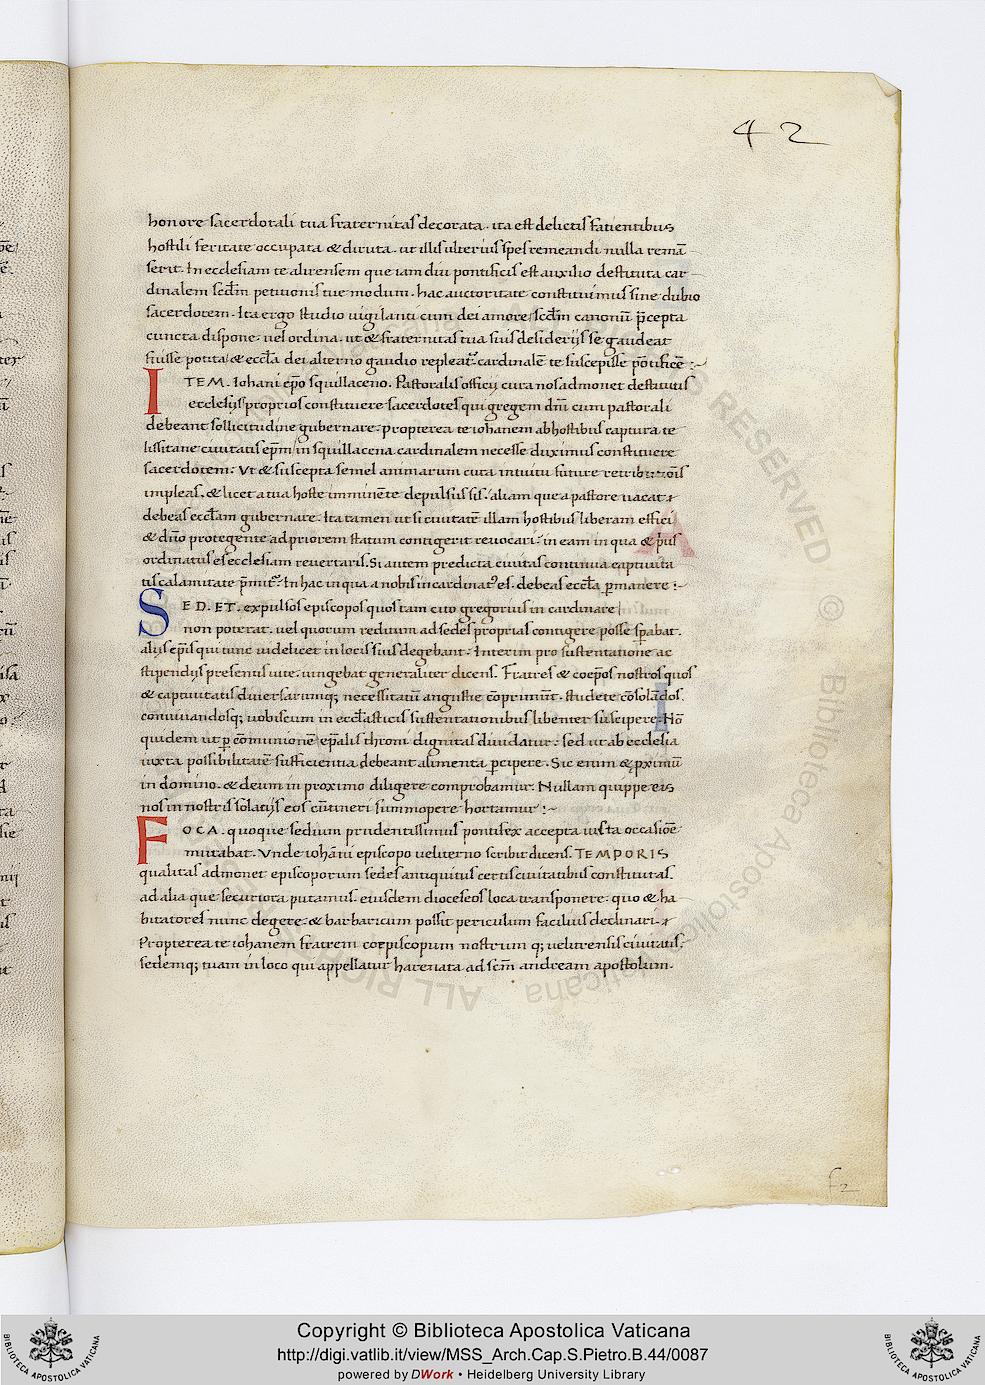 42
honore sacerdotali tua fraternitas decorata. ita est delictis fatientibus
hostili feritate occupata & diruta. ut illis ulterius spes remeandi nulla remā
serit. In ecclesiam te alirensem que iam diu pontificis est auxilio destituta car
dinalem scdm̄ petitionis tue modum. hac auctoritate constituimus sine dubio
sacerdotem. Ita ergo studio uigilanti cum dei amore scdm̄ canonū p̄cepta
cuncta dispone. uel ordina. ut & fraternitas tua suis desiderijs se gaudeat
fuisse potita & eccl̄a dei alterno gaudio repleat᷑. cardinalē te suscepisse pōtificē :~
ITEM. Iohani ep̄o squillaceno. Pastoralis officij cura nos admonet destitutis
ecclesijs proprios constituere sacerdotes qui gregem dn̄i cum pastorali
debeant sollicitudine gubernare. propterea te iohanem ab hostibus captura te
lissitane ciuitatis ep̄m in squillacena cardinalem necesse duximus constituere
sacerdotem. Vt & suscepta semel animarum cura intuitu future
impleas. & licet a tua hoste imminēte depulsus sis. aliam que a pastore uacat
debeas eccl̄am gubernare. Ita tamen ut si ciuitatē illam hostibus liberam effici
& dn̄o protegente ad priorem statum contigerit reuocari. in eam in qua & p̄us
ordinatus es ecclesiam reuertaris. Si autem predicta ciuitas continua captiuita
tis calamitate p̄mit᷑. In hac in qua a nobis incardinat᷑ es. debeas eccl̄a ꝑmanere :~
SED. ET. expulsos episcopos quos tam cito gregorius in cardinare
non poterat. uel quorum reditum ad sedes proprias contigere posse sꝑabat.
alijs ep̄is qui tunc uidelicet in locis suis degebant. Interim pro sustentatione ac
stipendijs presentis uite. iungebat generaliter dicens. Fratres & coep̄os nostros quos
& captiuitatis diuersarumq; necessitatū angustie cōprimūt. studete cōsolādos
conuiuandosq; uobiscum in eccl̄asticis sustentationibus libenter suscipere. Nō
quidem ut ꝑ cōmunionē ep̄alis throni dignitas diuidatur. sed ut ab ecclesia
iuxta possibilitatē sufficientia debeant alimenta ꝑcipere. Sic enim & ꝓximū
in domino. & deum in proximo diligere comprobamur. Nullam quippe eis
nos in nostris solatijs eos cūtineri summopere hortamur :~
FOCA. quoque sedium prudentissimus pontifex accepta iusta occasiōe
mutabat. Vnde iohāni episcopo ueliterno scribit dicens. TEMPORIS
qualitas admonet episcoporum sedes antiquitus certis ciuitatibus constitutas.
ad alia que securiora putamus. eiusdem dioceseos loca transponere. quo & ha
bitatores nunc degere. & barbaricum possit periculum facilius declinari.
Propterea te iohanem fratrem coepiscopum nostrum q; uelitrensis ciuitatis.
sedemq; tuam in loco qui appellatur harenata ad scm̄ andream apostolum.
f2
Copyright © Biblioteca Apostolica Vaticana
http://digi.vatlib.it/view/MSS_Arch.Cap.S.Pietro.B.44/0087
powered by DWork • Heidelberg University Library